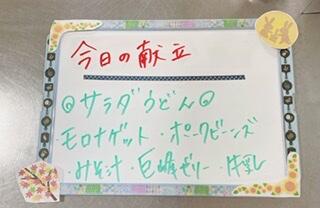 今日の献立
◎サラダうどん◎
モロナゲット・ポークビーンズ
・みそ汁・巨峰ゼリー・牛乳